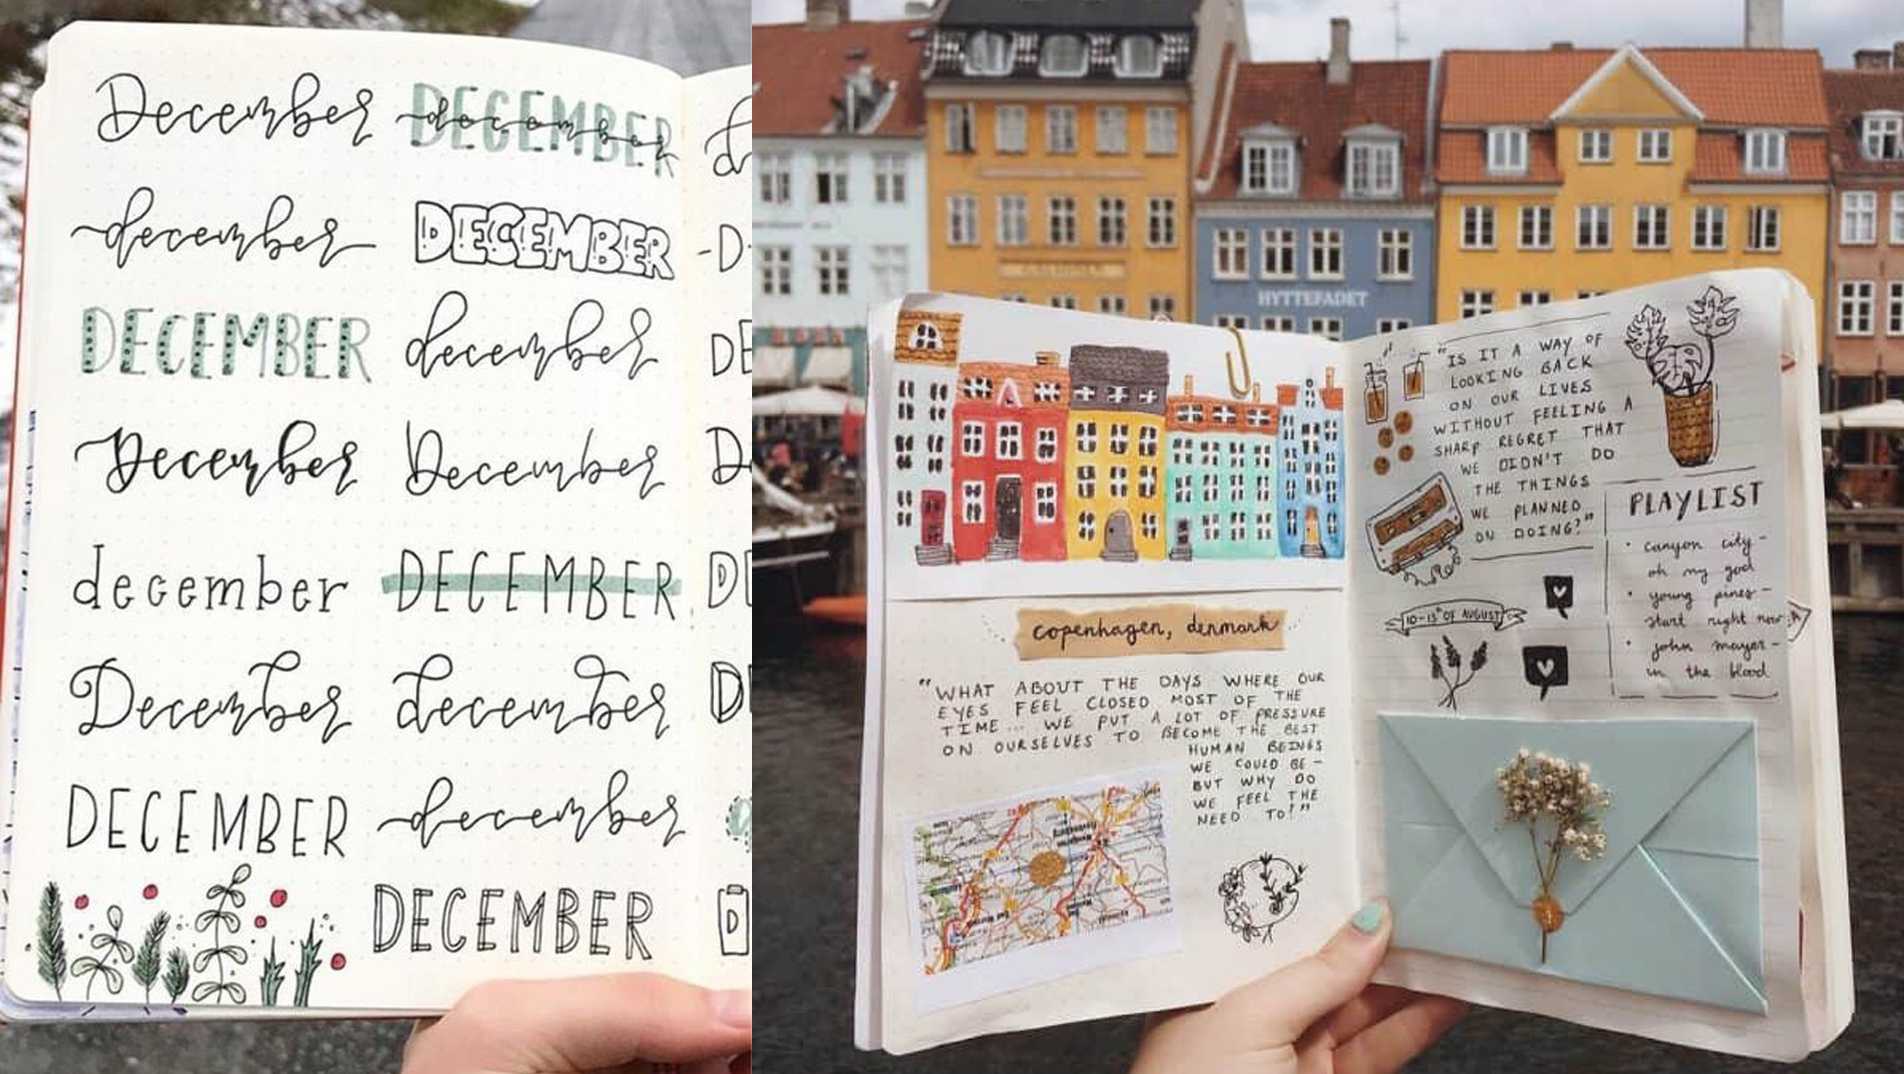 December DECEMBER
december
december DECEMBER
DECEMBER december
December December
december DECEMBER
December december
DECEMBER december
DECEMBER
HYTTEFADET
copenhagen, denmark
"WHAT ABOUT THE DAYS WHERE OUR
EYES FEEL CLOSED MOST OF THE
TIME... WE PUT A LOT OF PRESSURE
ON OURSELVES TO BECOME THE BEST
HUMAN BEINGS
WE COULD BE-
BUT WHY DO
WE FEEL THE
NEED TO?"
"IS IT A WAY OF
LOOKING BACK
ON OUR LIVES
WITHOUT FEELING A
SHARP REGRET THAT
WE DIDN'T DO
THE THINGS
WE PLANNED
ON DOING?"
10-15th OF AUGUST
PLAYLIST
• canyon city-
oh my god
• young pines-
start right now
• john mayer-
in the blood